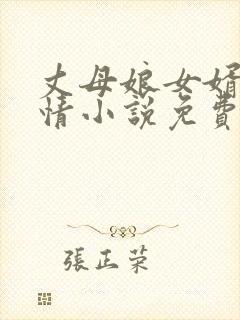 丈母娘女婿
情小說免費
張正荣